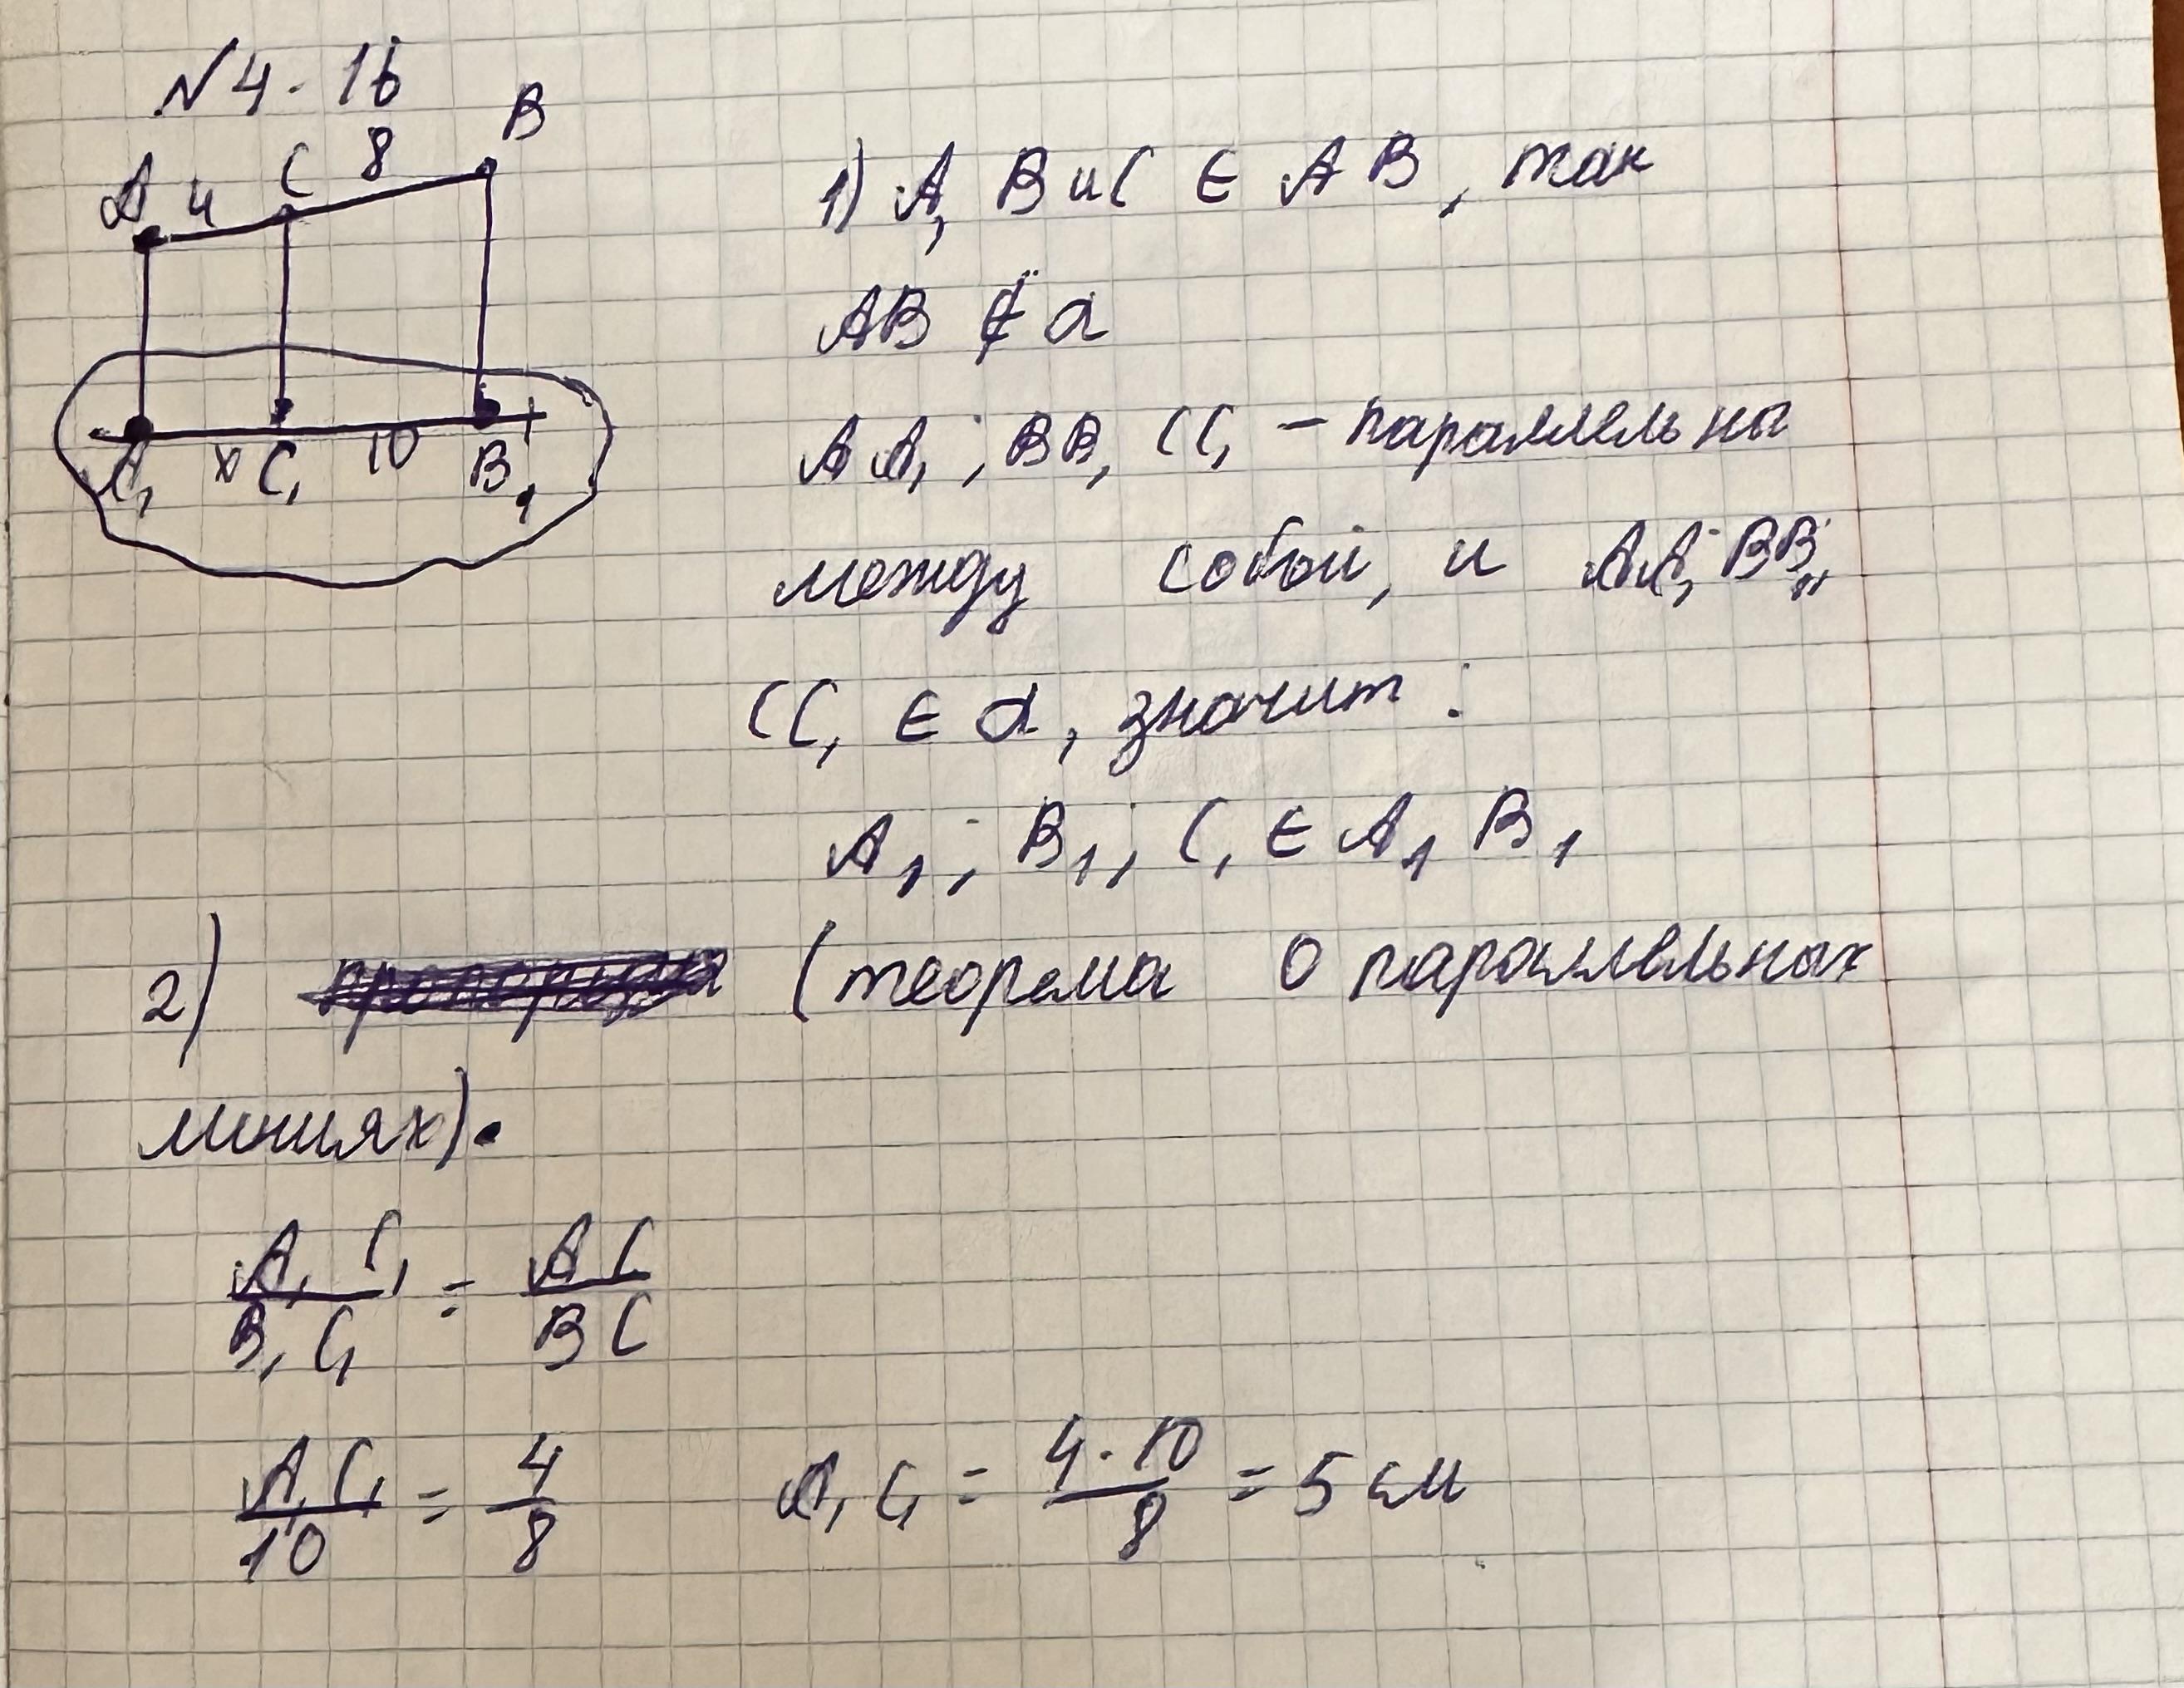 №4.16
B
A 4 C 8
A₁ x C₁ 10 B₁
1) A, B и C ∈ AB, так
AB ∉ α
AA₁; BB₁ CC₁ – параллельны
между собой, и AA₁; BB₁,
CC₁ ∈ α, значит:
A₁; B₁; C₁ ∈ A₁ B₁
2) (теорема о параллельных
линиях).
A₁C₁/B₁C₁ = AC/BC
A₁C₁/10 = 4/8 A₁C₁ = 4·10/8 = 5 см